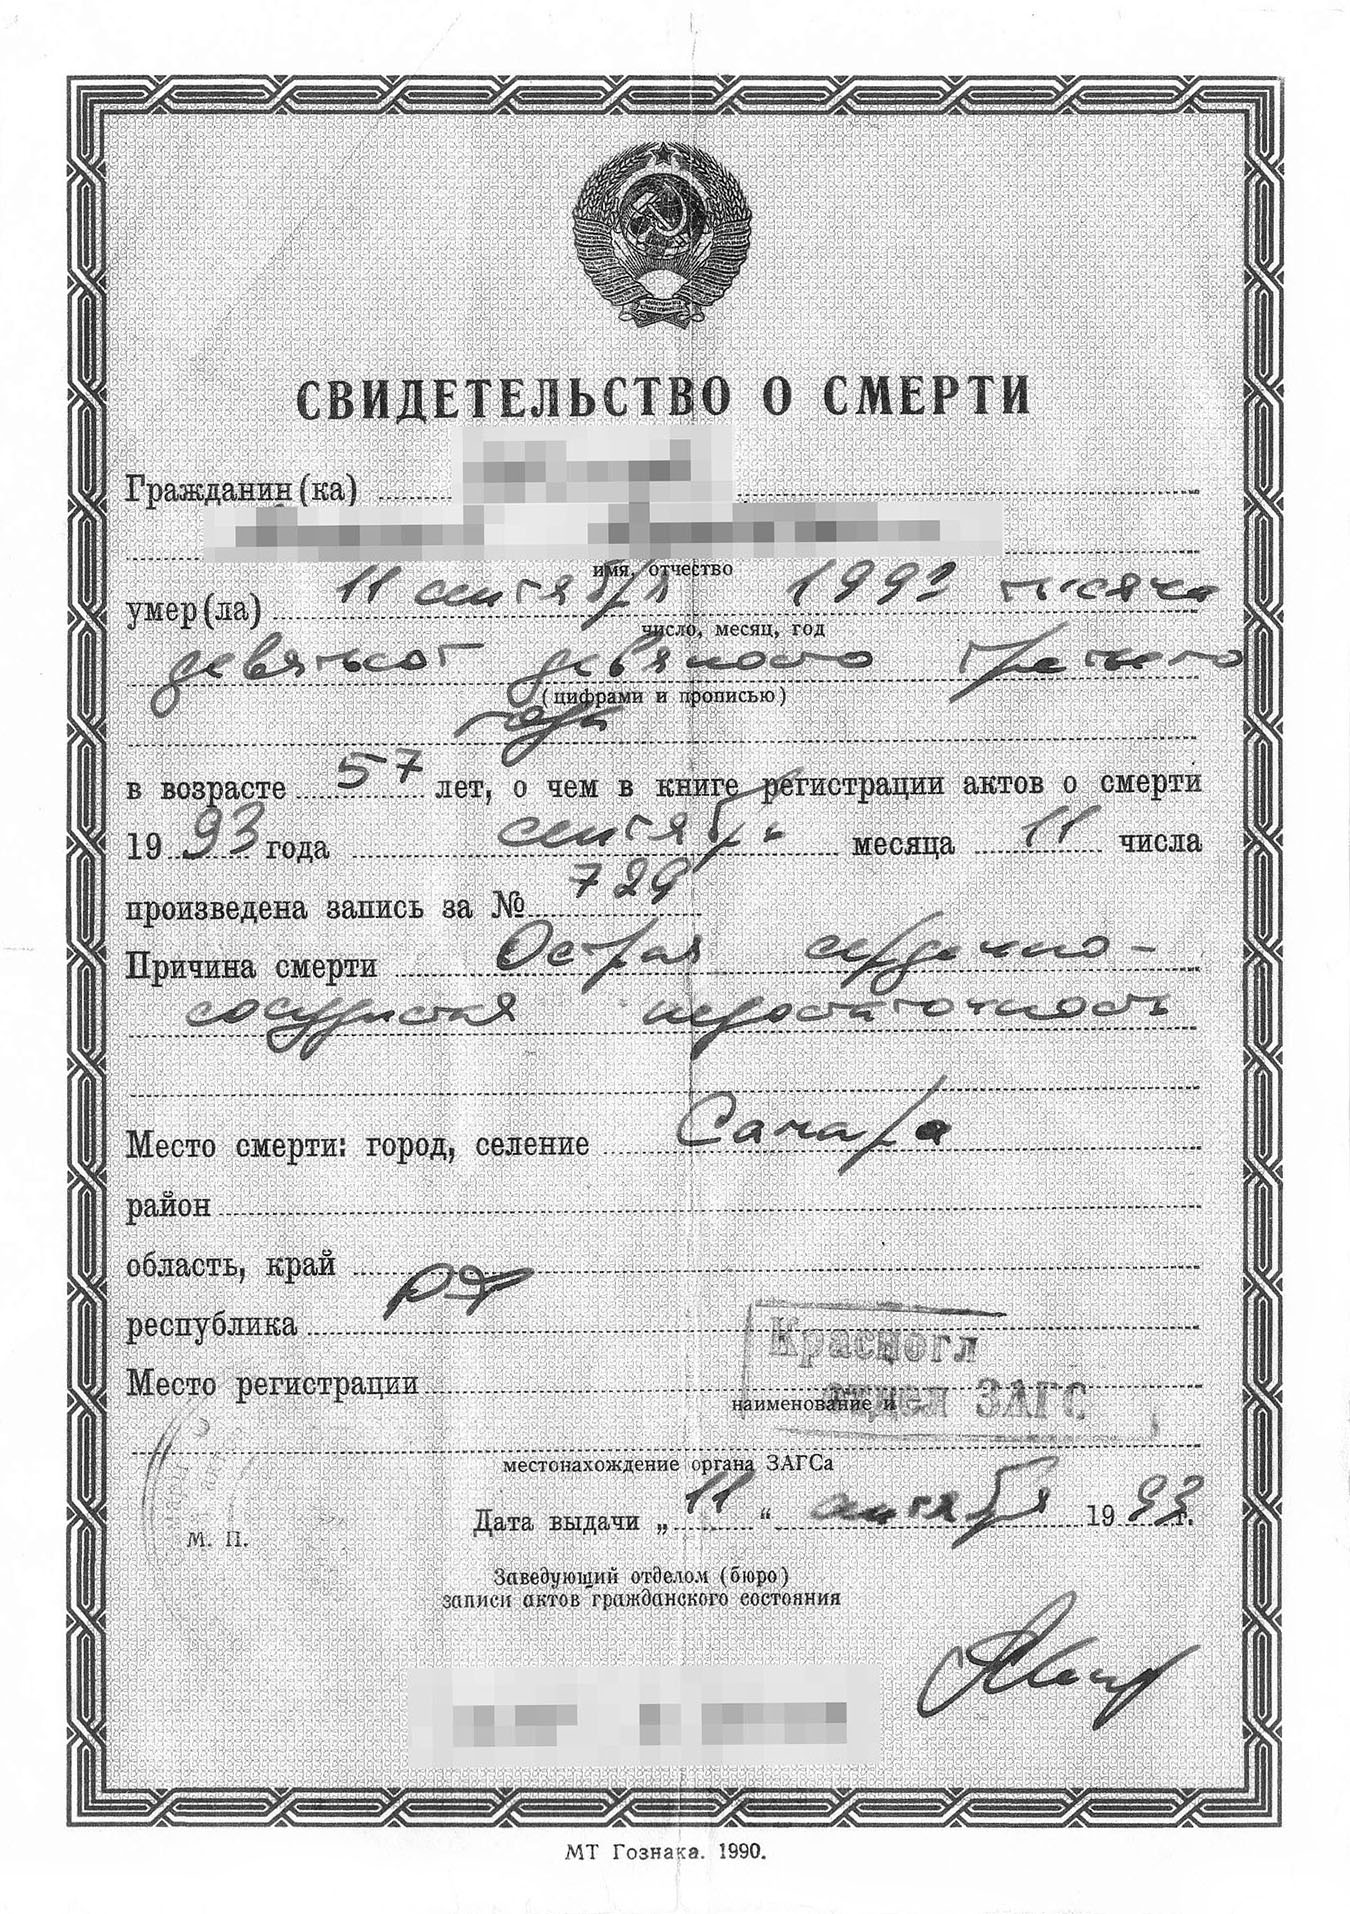 СВИДЕТЕЛЬСТВО О СМЕРТИ
Гражданин(ка)
имя, отчество
умер(ла) 11 сентября 1993 тысяча
число, месяц, год
девятьсот девяносто третьего
(цифрами и прописью)
года
в возрасте 57 лет, о чем в книге регистрации актов о смерти
19 93 года сентября месяца 11 числа
произведена запись за № 729
Причина смерти Острая сердечно-
сосудистая недостаточность
Место смерти: город, селение Самара
район
область, край
республика РФ
Место регистрации Красногл
отдел ЗАГС
наименование и
местонахождение органа ЗАГСа
Дата выдачи „ 11 “ сентября 19 93 г.
М. П.
Заведующий отделом (бюро)
записи актов гражданского состояния
МТ Гознака. 1990.